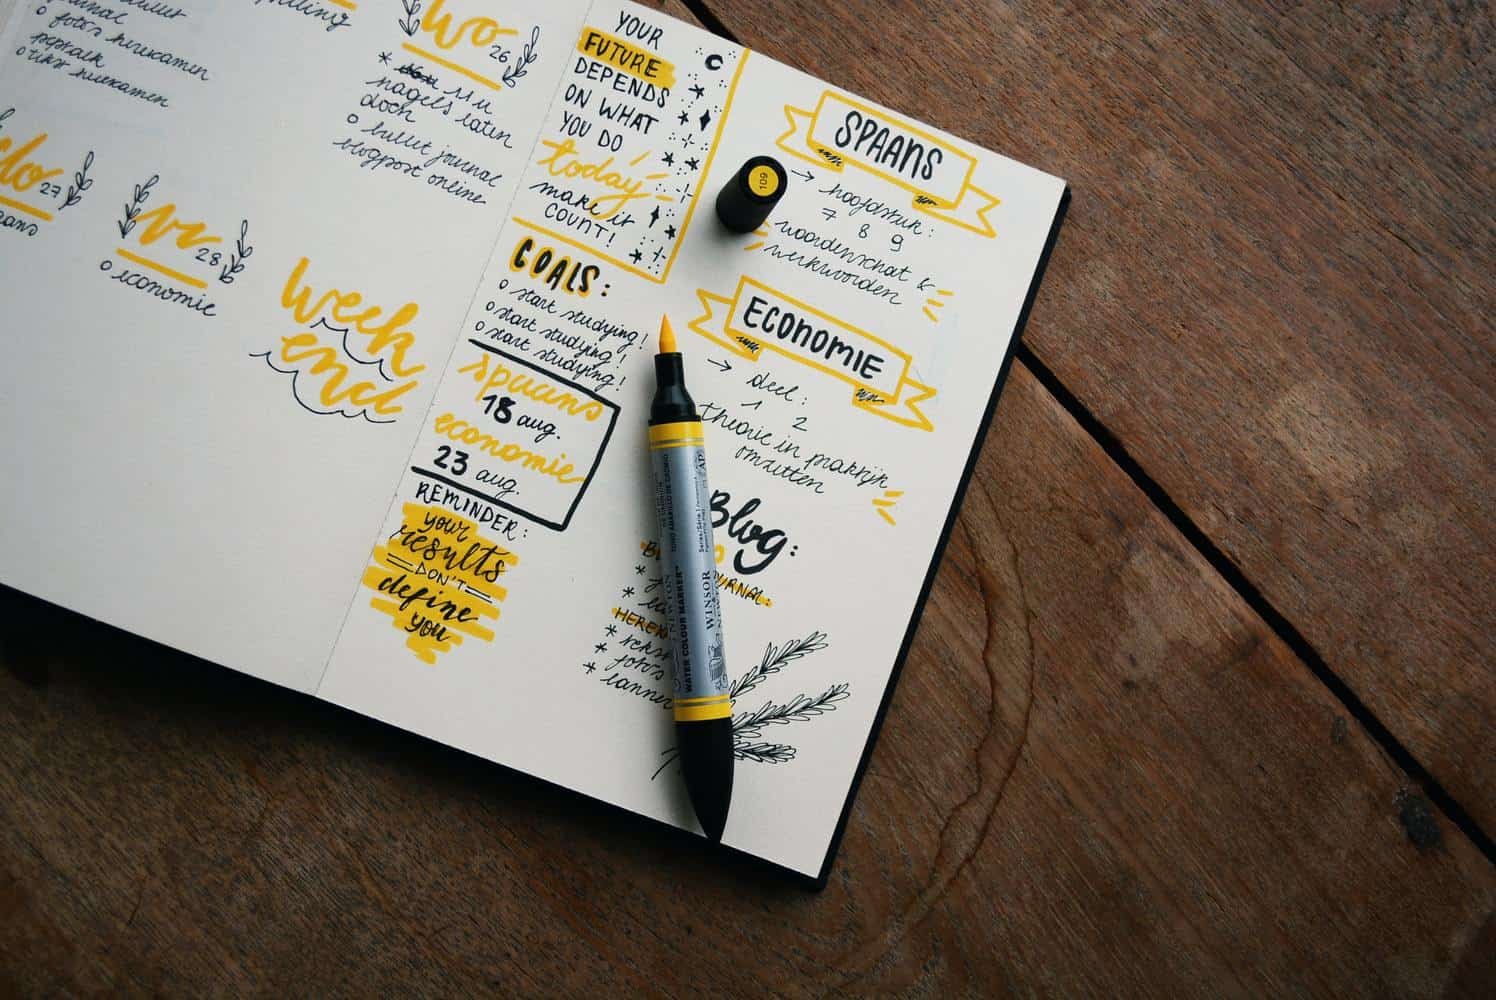 bullet
journal
o foto's herexamen
o tekst herexamen
wo 26
* 11 u
nagels laten
doen
o bullet journal
blogpost online
do 27
vr 28
o economie
week
end
YOUR
FUTURE
DEPENDS
ON WHAT
YOU DO
today
make it
COUNT!
GOALS:
o start studying!
o start studying!
o start studying!
spaans
18 aug.
economie
23 aug.
REMINDER:
your
results
DON'T
define
you
109
SPAANS
→ hoofdstuk:
7 8 9
woordenschat &
werkwoorden
ECONOMIE
→ deel:
1 2
theorie in praktijk
omzetten
Blog:
* foto's
WINSOR
WATER COLOUR MARKER™